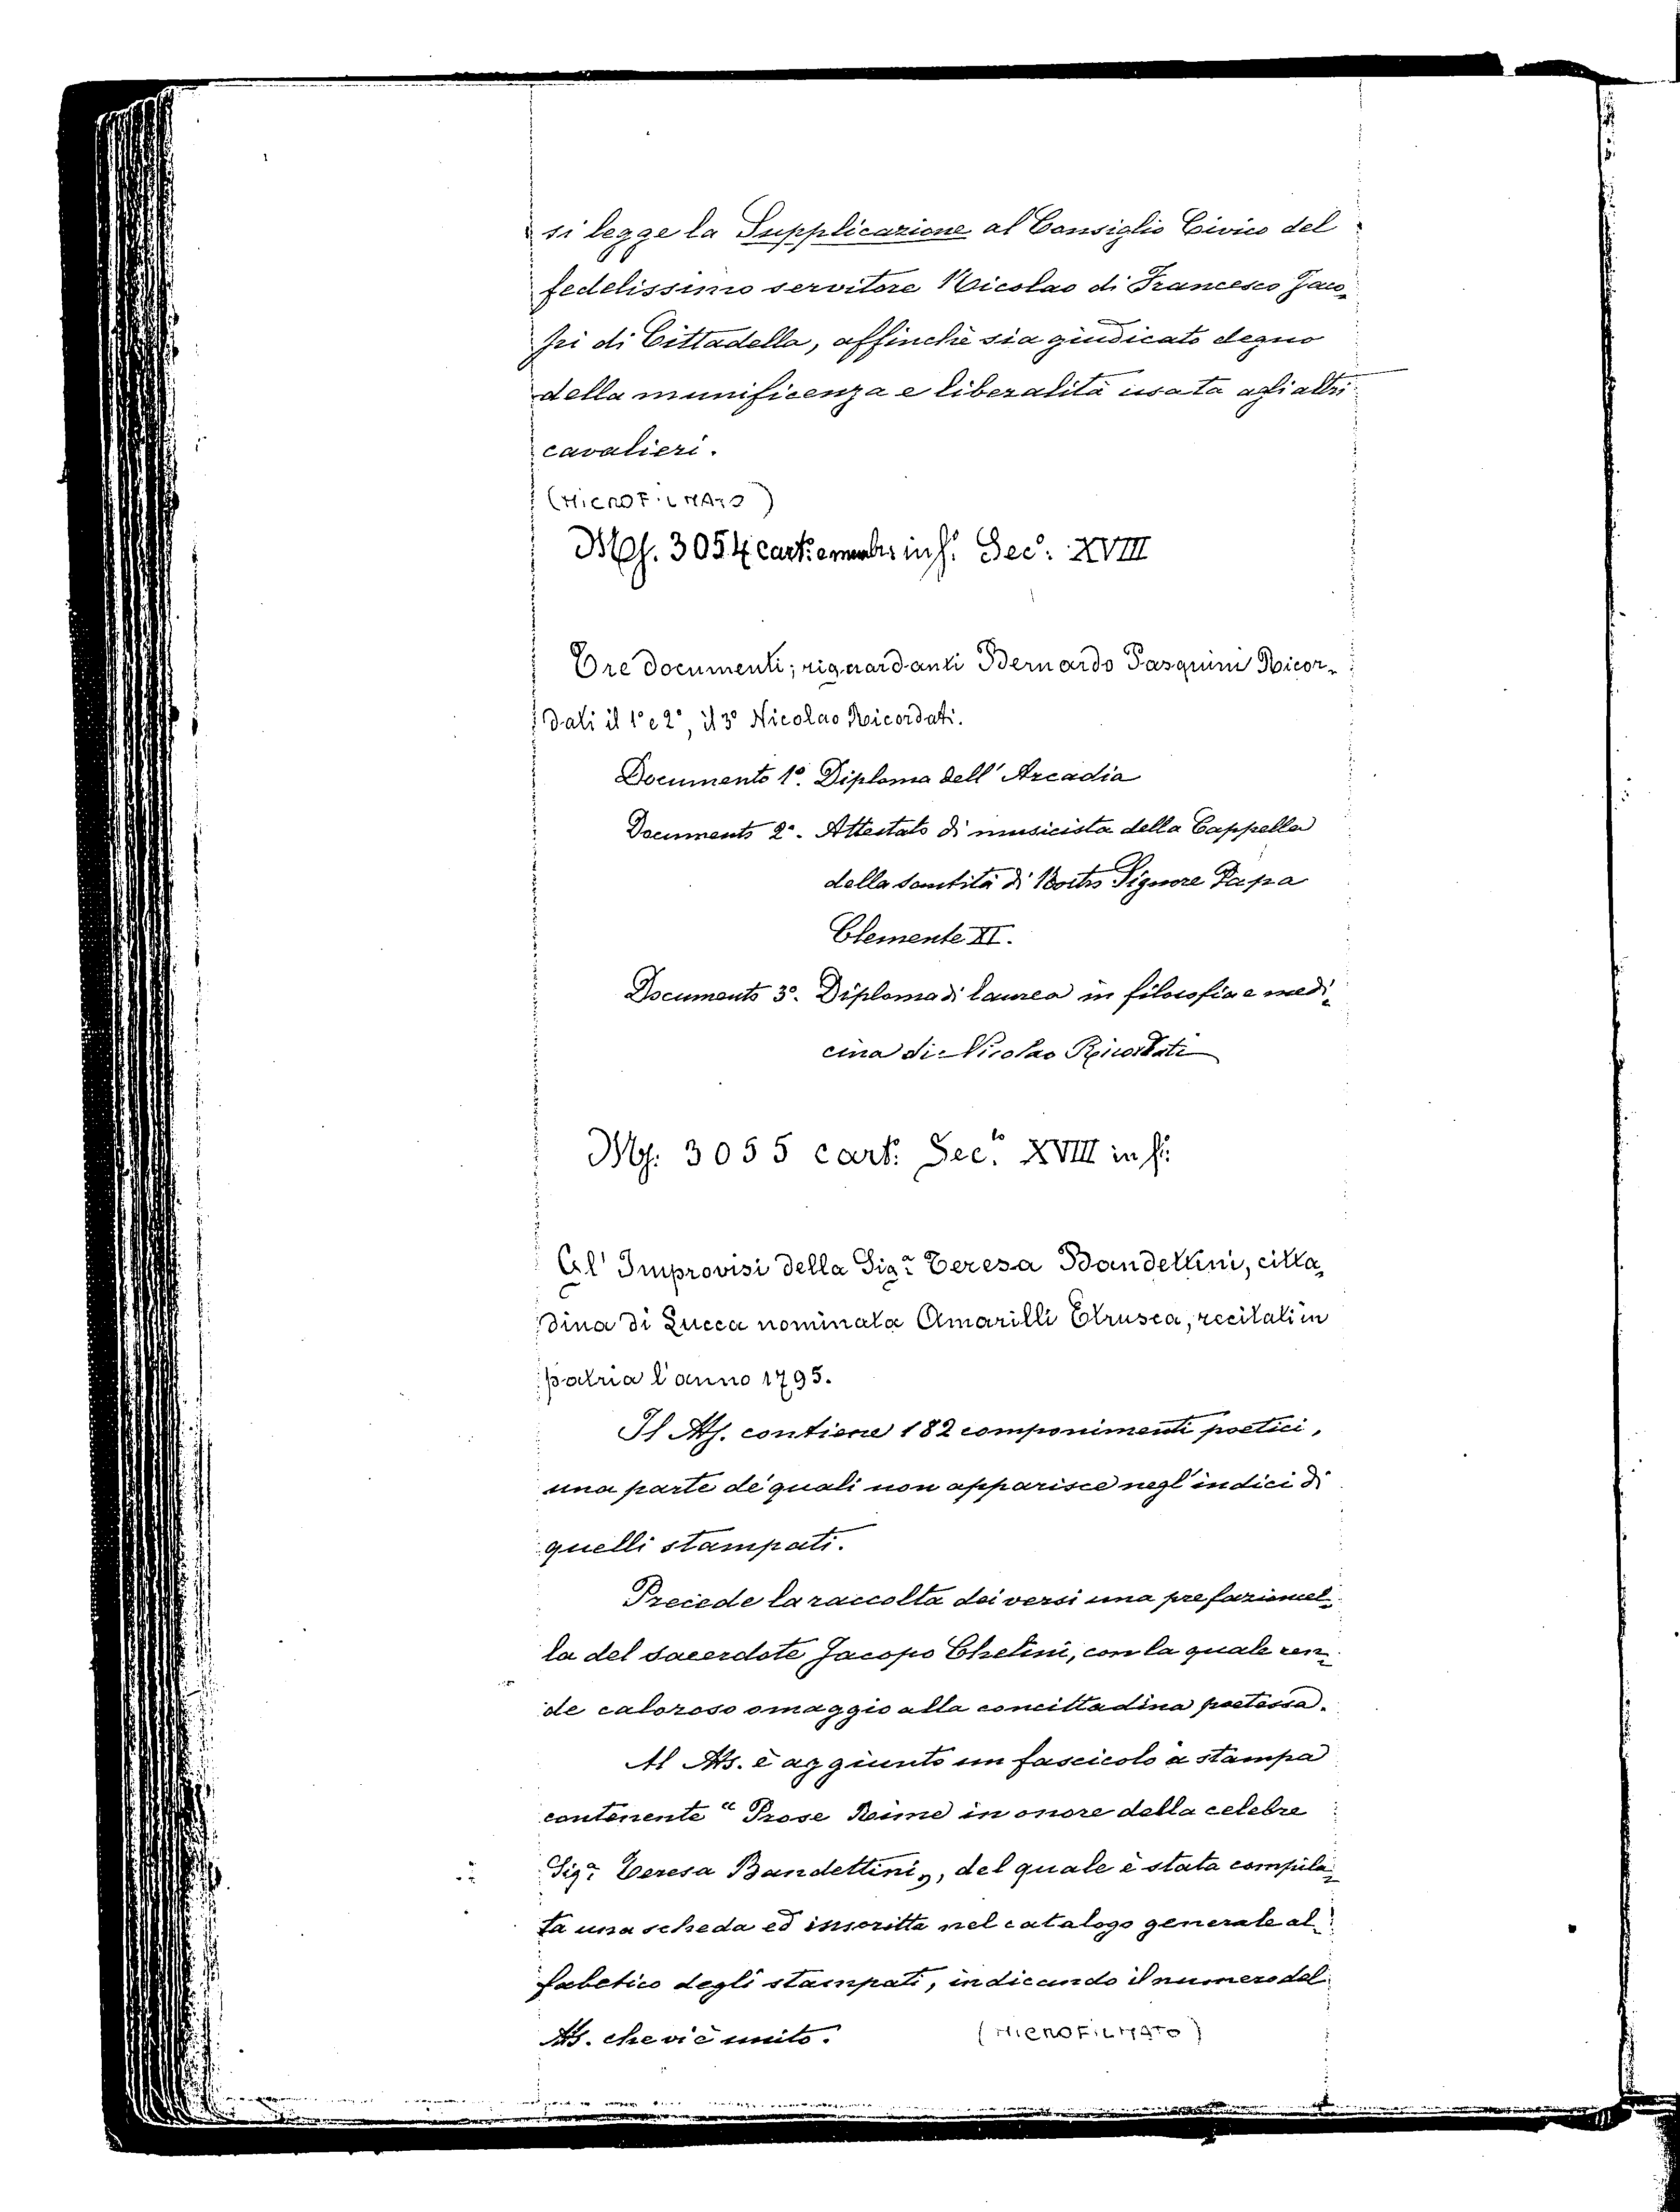 si legge la Supplicazione al Consiglio Civico del
fedelissimo servitore Nicolao di Francesco Jaco-
pi di Cittadella, affinchè sia giudicato degno
della munificenza e liberalità usata agli altri
cavalieri.
(MICROFILMATO)
Ms. 3054 cart. e membr. in f. Sec. XVIII
Tre documenti; riguardanti Bernardo Pasquini Ricor-
dati il 1° e 2°, il 3° Nicolao Ricordati.
Documento 1°. Diploma dell' Arcadia
Documento 2°. Attestato di musicista della Cappella
della Santità di Nostro Signore Papa
Clemente XI.
Documento 3°. Diploma di laurea in filosofia e medi-
cina di Nicolao Ricordati
Ms. 3055 cart. Sec.to XVIII in f.
Gl' Improvisi della Sig.a Teresa Bandettini, citta-
dina di Lucca nominata Amarilli Etrusca, recitati in
patria l'anno 1795.
Il Ms. contiene 182 componimenti poetici,
una parte de' quali non apparisce negl' indici di
quelli stampati.
Precede la raccolta dei versi una prefazionel-
la del sacerdote Jacopo Chelini, con la quale ren-
de caloroso omaggio alla concittadina poetessa.
Al Ms. è aggiunto un fascicolo a stampa
contenente "Prose Rime in onore della celebre
Sig.a Teresa Bandettini", del quale è stata compila-
ta una scheda ed inscritta nel catalogo generale al-
fabetico degli stampati, indicando il numero del
Ms. che vi è unito. (MICROFILMATO)